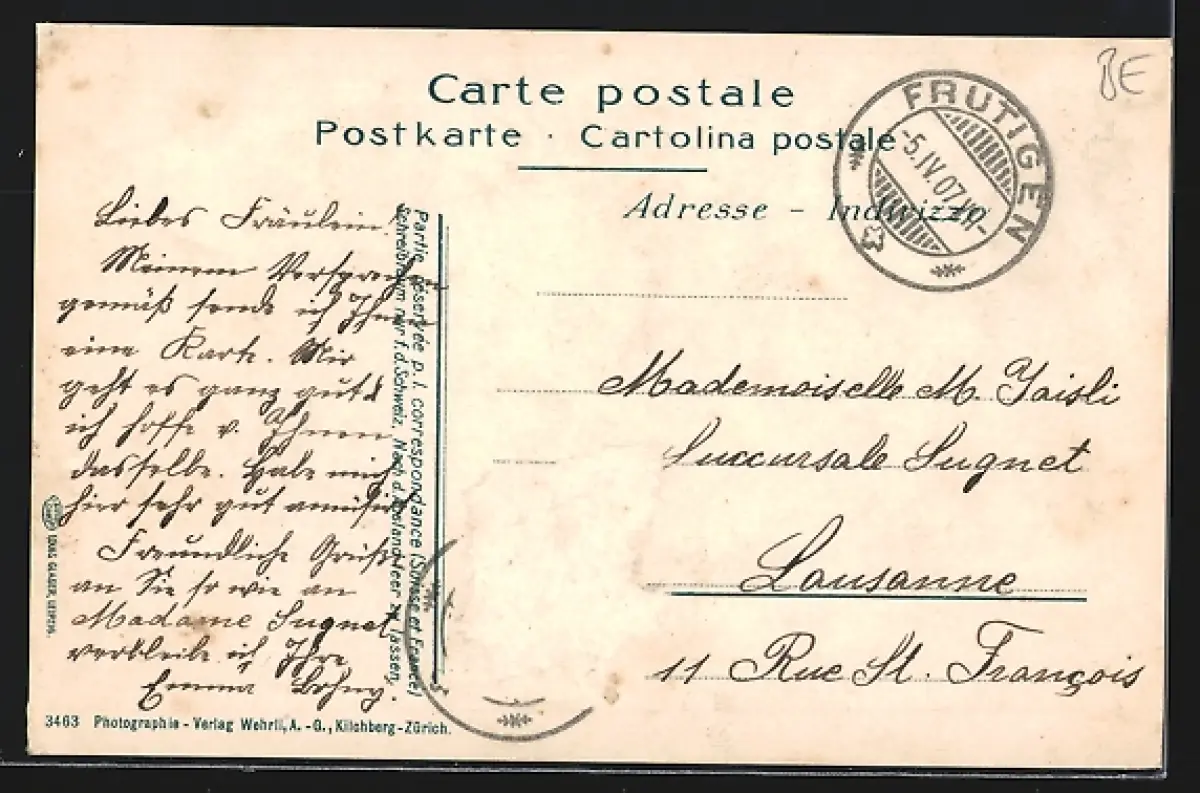 Carte postale
Postkarte · Cartolina postale
Adresse - Indirizzo
BE
FRUTIGEN
-5.IV.07.
Liebes Fräulein!
Meinem Versprechen
gemäß sende ich Ihnen
eine Karte. Mir
geht es ganz gut &
ich hoffe v. Ihnen
dasselbe. Habe mich
hier sehr gut amüsirt
Freundliche Grüße
an Sie so wie an
Madame Sugnet
verbleibe ich Ihre
Emma
Partie réservée p. l. correspondance (Suisse et France)
Schreibraum nur f. d. Schweiz. Nach d. Ausland leer zu lassen.
Mademoiselle M. Jaisli
Succursale Sugnet
Lausanne
11 Rue St. François
LOUIS GLASER, LEIPZIG.
3463 Photographie - Verlag Wehrli, A. - G., Kilchberg - Zürich.